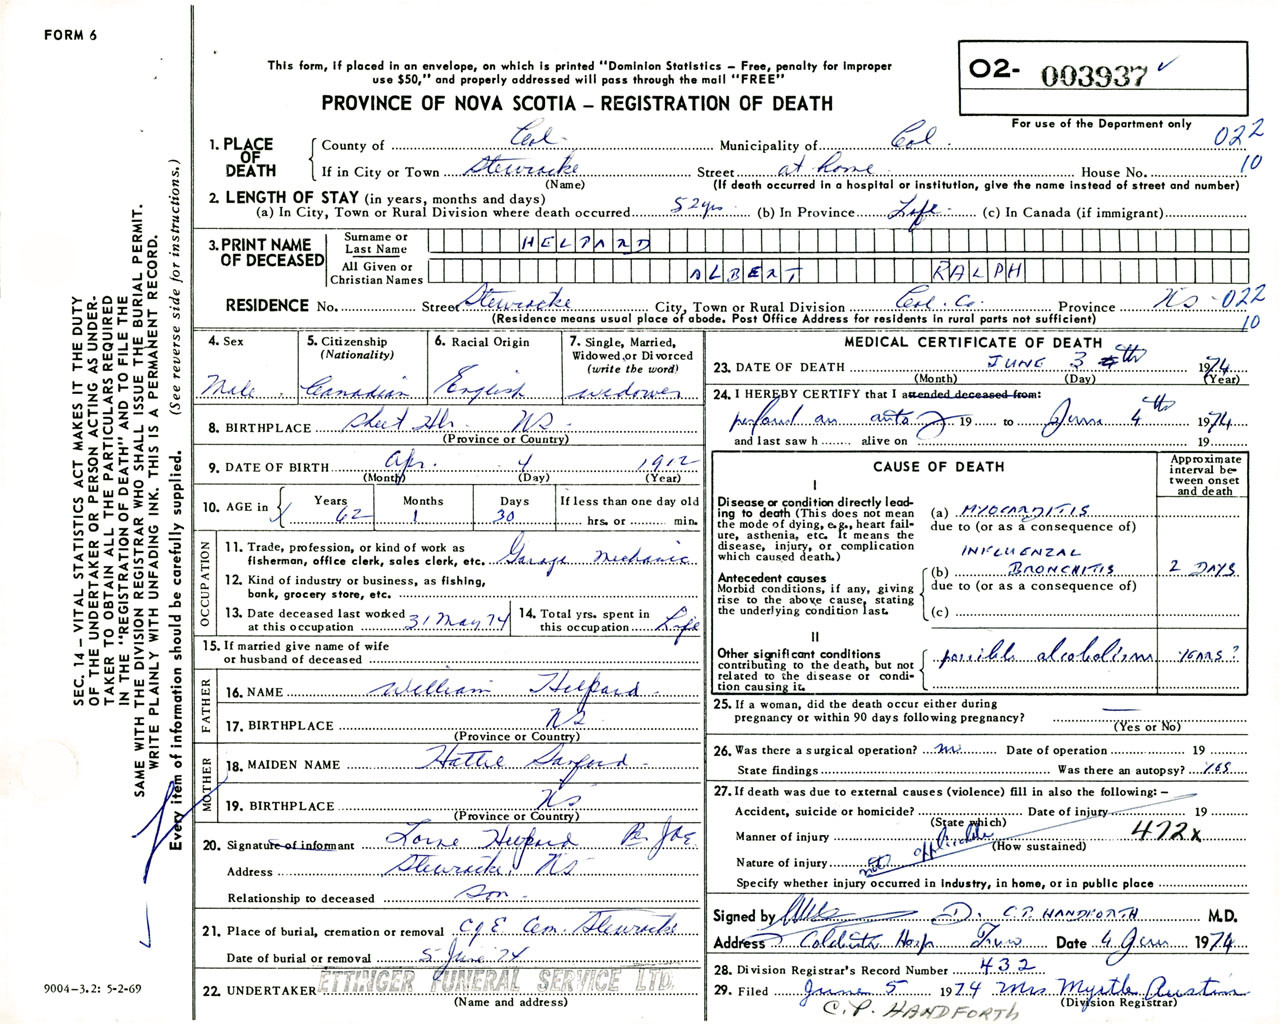 FORM 6
This form, if placed in an envelope, on which is printed "Dominion Statistics – Free, penalty for improper
use $50," and properly addressed will pass through the mail "FREE"
PROVINCE OF NOVA SCOTIA – REGISTRATION OF DEATH
O2- 003937 ✓
For use of the Department only
022
10
1. PLACE OF DEATH
County of Col. Municipality of Col.
If in City or Town Stewiacke Street at home House No.
(Name) (If death occurred in a hospital or institution, give the name instead of street and number)
2. LENGTH OF STAY (in years, months and days)
(a) In City, Town or Rural Division where death occurred 52 yrs (b) In Province Life (c) In Canada (if immigrant)
3. PRINT NAME OF DECEASED
Surname or Last Name HELPARD
All Given or Christian Names ALBERT RALPH
RESIDENCE No. Street Stewiacke City, Town or Rural Division Col. Co. Province NS - 022
(Residence means usual place of abode. Post Office Address for residents in rural parts not sufficient) 10
4. Sex
Male
5. Citizenship (Nationality)
Canadian
6. Racial Origin
English
7. Single, Married, Widowed or Divorced (write the word)
widower
8. BIRTHPLACE Sheet Hbr. NS
(Province or Country)
9. DATE OF BIRTH Apr. 4 1912
(Month) (Day) (Year)
10. AGE in Years 62 Months 1 Days 30 If less than one day old hrs. or min.
OCCUPATION
11. Trade, profession, or kind of work as fisherman, office clerk, sales clerk, etc. Garage Mechanic
12. Kind of industry or business, as fishing, bank, grocery store, etc.
13. Date deceased last worked at this occupation 31 May 74
14. Total yrs. spent in this occupation Life
15. If married give name of wife or husband of deceased
FATHER
16. NAME William Helpard
17. BIRTHPLACE NS
(Province or Country)
MOTHER
18. MAIDEN NAME Hattie
19. BIRTHPLACE NS
(Province or Country)
20. Signature of informant Lorne Helpard
Address Stewiacke, NS
Relationship to deceased Son
21. Place of burial, cremation or removal C of E Cem. Stewiacke
Date of burial or removal 5 June 74
22. UNDERTAKER ETTINGER FUNERAL SERVICE LTD.
(Name and address)
MEDICAL CERTIFICATE OF DEATH
23. DATE OF DEATH JUNE 3 th 1974
(Month) (Day) (Year)
24. I HEREBY CERTIFY that I attended deceased from:
perform an 19 to June 4th 1974
and last saw h alive on 19
CAUSE OF DEATH
Approximate interval between onset and death
I
Disease or condition directly leading to death (This does not mean the mode of dying, e.g., heart failure, asthenia, etc. It means the disease, injury, or complication which caused death.)
(a) MYOCARDITIS
due to (or as a consequence of)
INFLUENZAL
(b) BRONCHITIS 2 DAYS
due to (or as a consequence of)
(c)
Antecedent causes
Morbid conditions, if any, giving rise to the above cause, stating the underlying condition last.
II
Other significant conditions
contributing to the death, but not related to the disease or condition causing it.
possible alcoholism YEARS?
25. If a woman, did the death occur either during pregnancy or within 90 days following pregnancy? —
(Yes or No)
26. Was there a surgical operation? no Date of operation 19
State findings Was there an autopsy? YES
27. If death was due to external causes (violence) fill in also the following: –
Accident, suicide or homicide? Date of injury 19
(State which)
Manner of injury not applicable 472x
(How sustained)
Nature of injury
Specify whether injury occurred in industry, in home, or in public place
Signed by D. C.P. HANDFORTH M.D.
Address Colchester Hosp Truro Date 4 June 1974
28. Division Registrar's Record Number 432
29. Filed June 5 1974 Mrs Myrtle Austin
(Division Registrar)
C.P. HANDFORTH
SEC. 14 – VITAL STATISTICS ACT MAKES IT THE DUTY
OF THE UNDERTAKER OR PERSON ACTING AS UNDER-
TAKER TO OBTAIN ALL THE PARTICULARS REQUIRED
IN THE "REGISTRATION OF DEATH" AND TO FILE THE
SAME WITH THE DIVISION REGISTRAR WHO SHALL ISSUE THE BURIAL PERMIT.
WRITE PLAINLY WITH UNFADING INK. THIS IS A PERMANENT RECORD.
Every item of information should be carefully supplied. (See reverse side for instructions.)
9004-3.2: 5-2-69